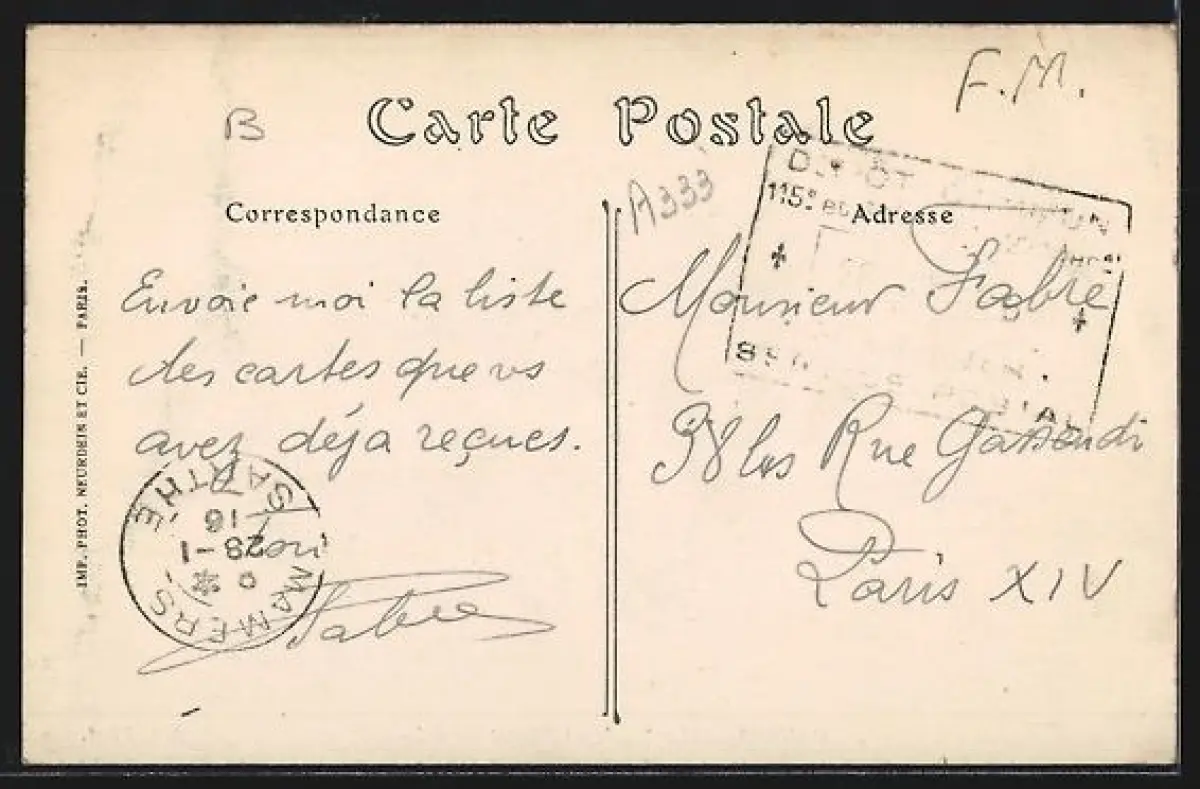 F.M.
B
Carte Postale
A333
Correspondance
Adresse
DÉPÔT
115e
Envoie moi la liste
des cartes que vs
avez déja reçues.
Fabre
Monsieur Fabre
38 bis Rue Gassendi
Paris XIV
MAMERS
SARTHE
28-1
16
IMP. PHOT. NEURDEIN ET CIE. — PARIS.